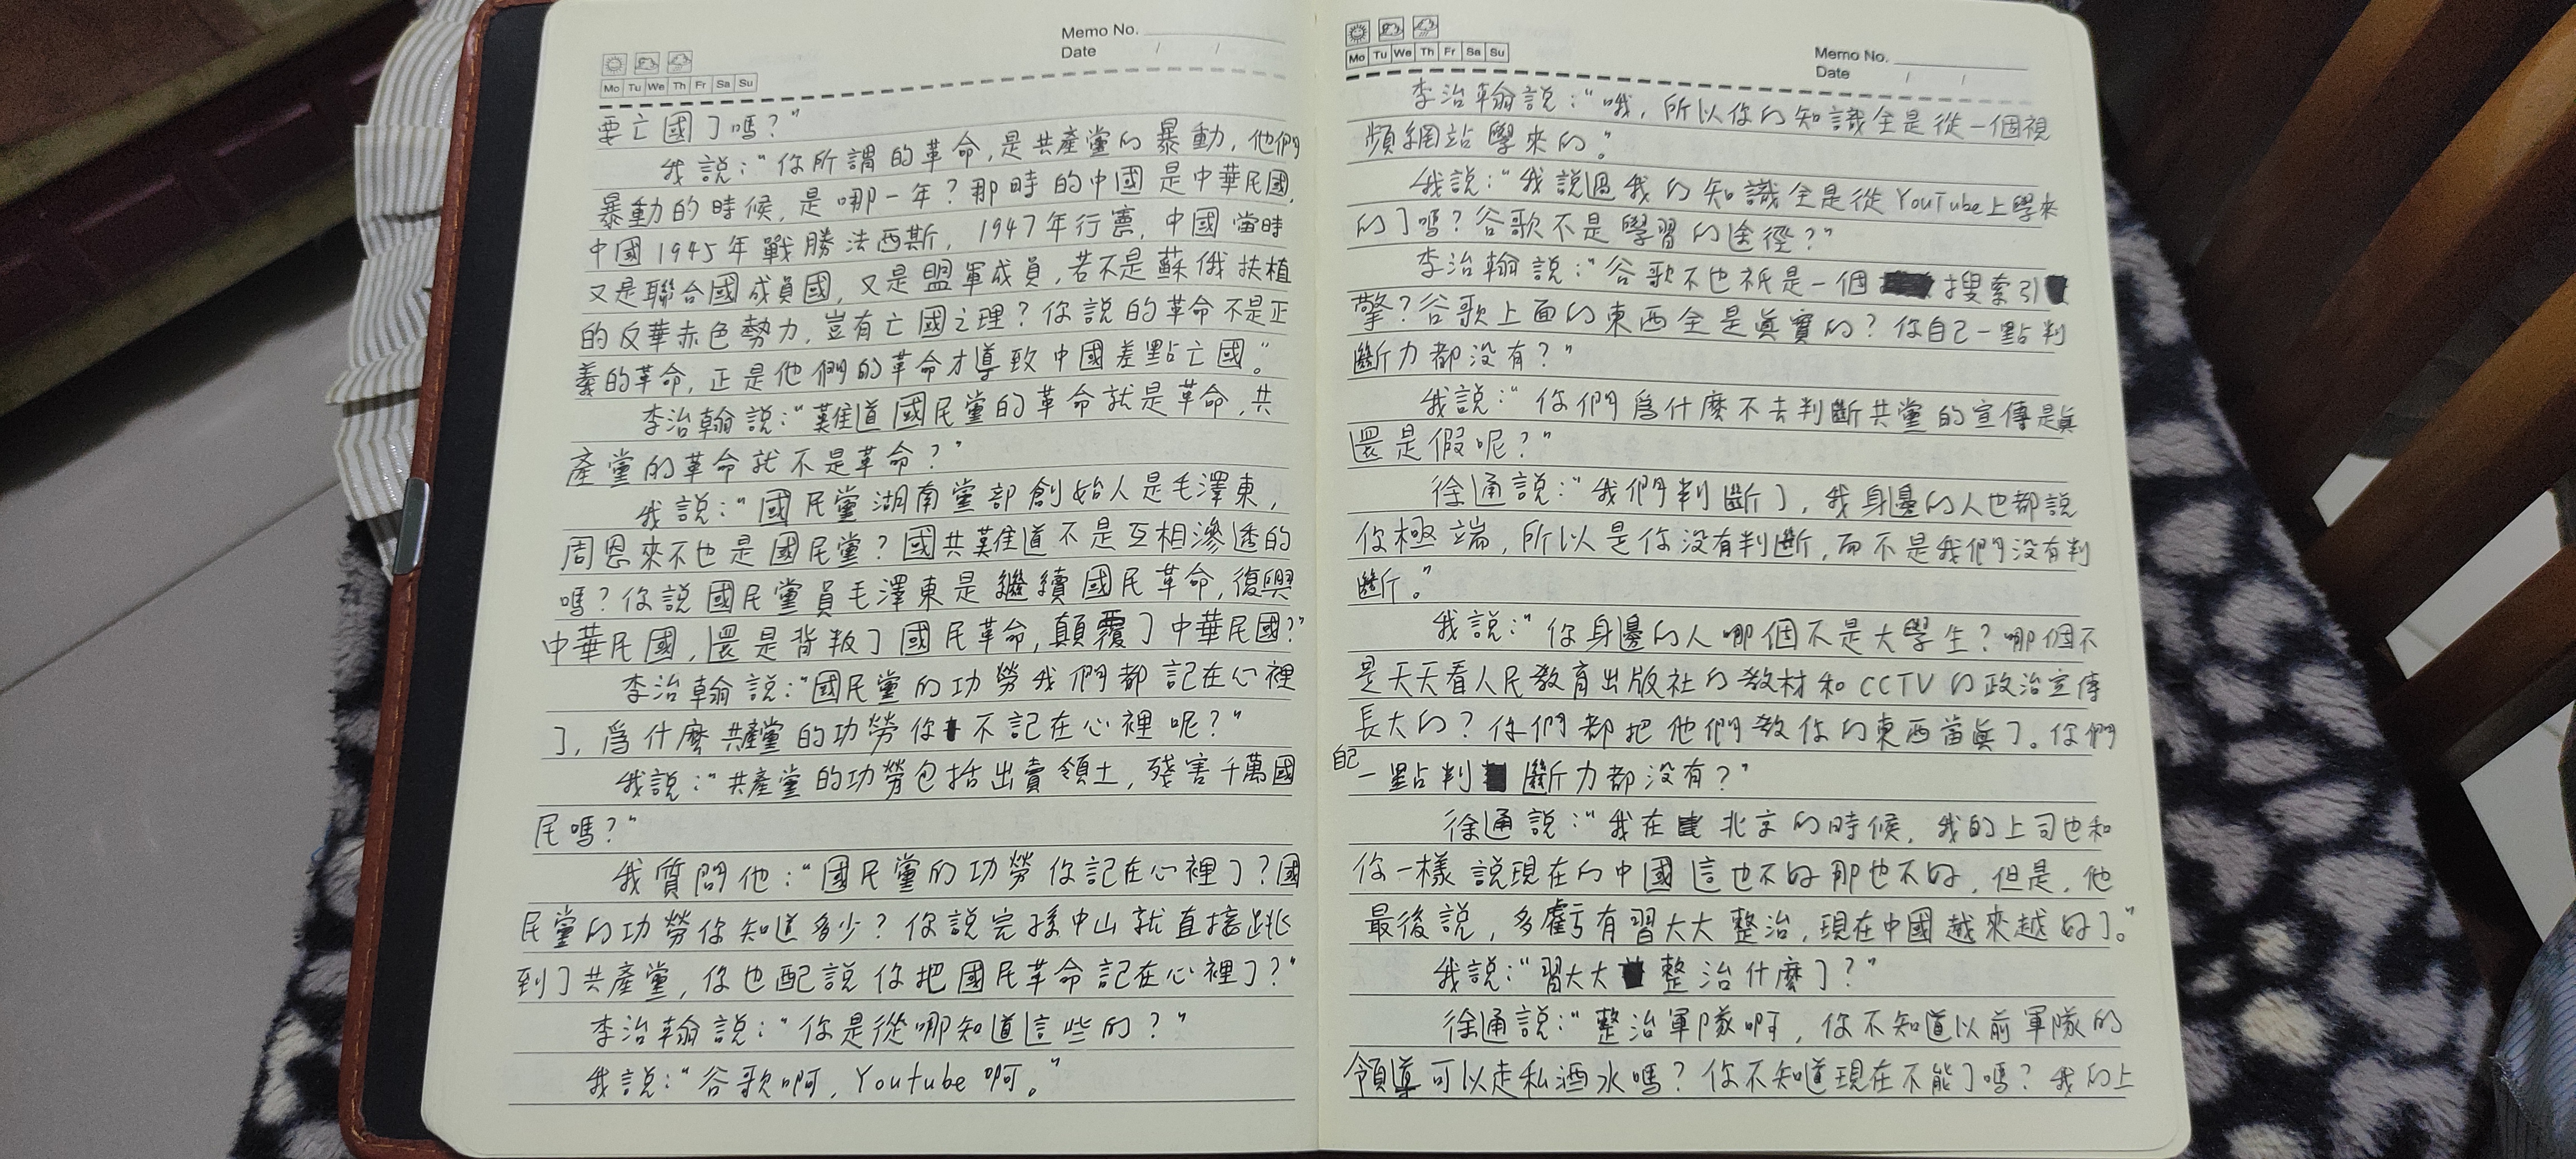 Memo No.
Date / /
Mo Tu We Th Fr Sa Su
要亡國了嗎？”
我說：“你所謂的革命，是共產黨的暴動，他們
暴動的時候，是哪一年？那時的中國是中華民國，
中國1945年戰勝法西斯，1947年行憲，中國當時
又是聯合國成員國，又是盟軍成員，若不是蘇俄扶植
的反華赤色勢力，豈有亡國之理？你說的革命不是正
義的革命，正是他們的革命才導致中國差點亡國。”
李治翰說：“難道國民黨的革命就是革命，共
產黨的革命就不是革命？”
我說：“國民黨湖南黨部創始人是毛澤東，
周恩來不也是國民黨？國共難道不是互相滲透的
嗎？你說國民黨員毛澤東是繼續國民革命，復興
中華民國，還是背叛了國民革命，顛覆了中華民國？”
李治翰說：“國民黨的功勞我們都記在心裡
了，爲什麼共產黨的功勞你不記在心裡呢？”
我說：“共產黨的功勞包括出賣領土，殘害千萬國
民嗎？”
我質問他：“國民黨的功勞你記在心裡了？國
民黨的功勞你知道多少？你說完孫中山就直接跳
到了共產黨，你也配說你把國民革命記在心裡了？”
李治翰說：“你是從哪知道這些的？”
我說：“谷歌啊，Youtube啊。”
Memo No.
Date / /
Mo Tu We Th Fr Sa Su
李治翰說：“哦，所以你的知識全是從一個視
頻網站學來的。”
我說：“我說過我的知識全是從YouTube上學來
的了嗎？谷歌不是學習的途徑？”
李治翰說：“谷歌不也衹是一個搜索引
擎？谷歌上面的東西全是眞實的？你自己一點判
斷力都没有？”
我說：“你們爲什麼不去判斷共黨的宣傳是眞
還是假呢？”
徐通說：“我們判斷了，我身邊的人也都說
你極端，所以是你没有判斷，而不是我們没有判
斷。”
我說：“你身邊的人哪個不是大學生？哪個不
是天天看人民教育出版社的教材和CCTV的政治宣傳
長大的？你們都把他們教你的東西當眞了。你們
自己一點判斷力都没有？”
徐通說：“我在北京的時候，我的上司也和
你一樣說現在的中國這也不好那也不好，但是，他
最後說，多虧有習大大整治，現在中國越來越好了。”
我說：“習大大整治什麼了？”
徐通說：“整治軍隊啊，你不知道以前軍隊的
領導可以走私酒水嗎？你不知道現在不能了嗎？我的上